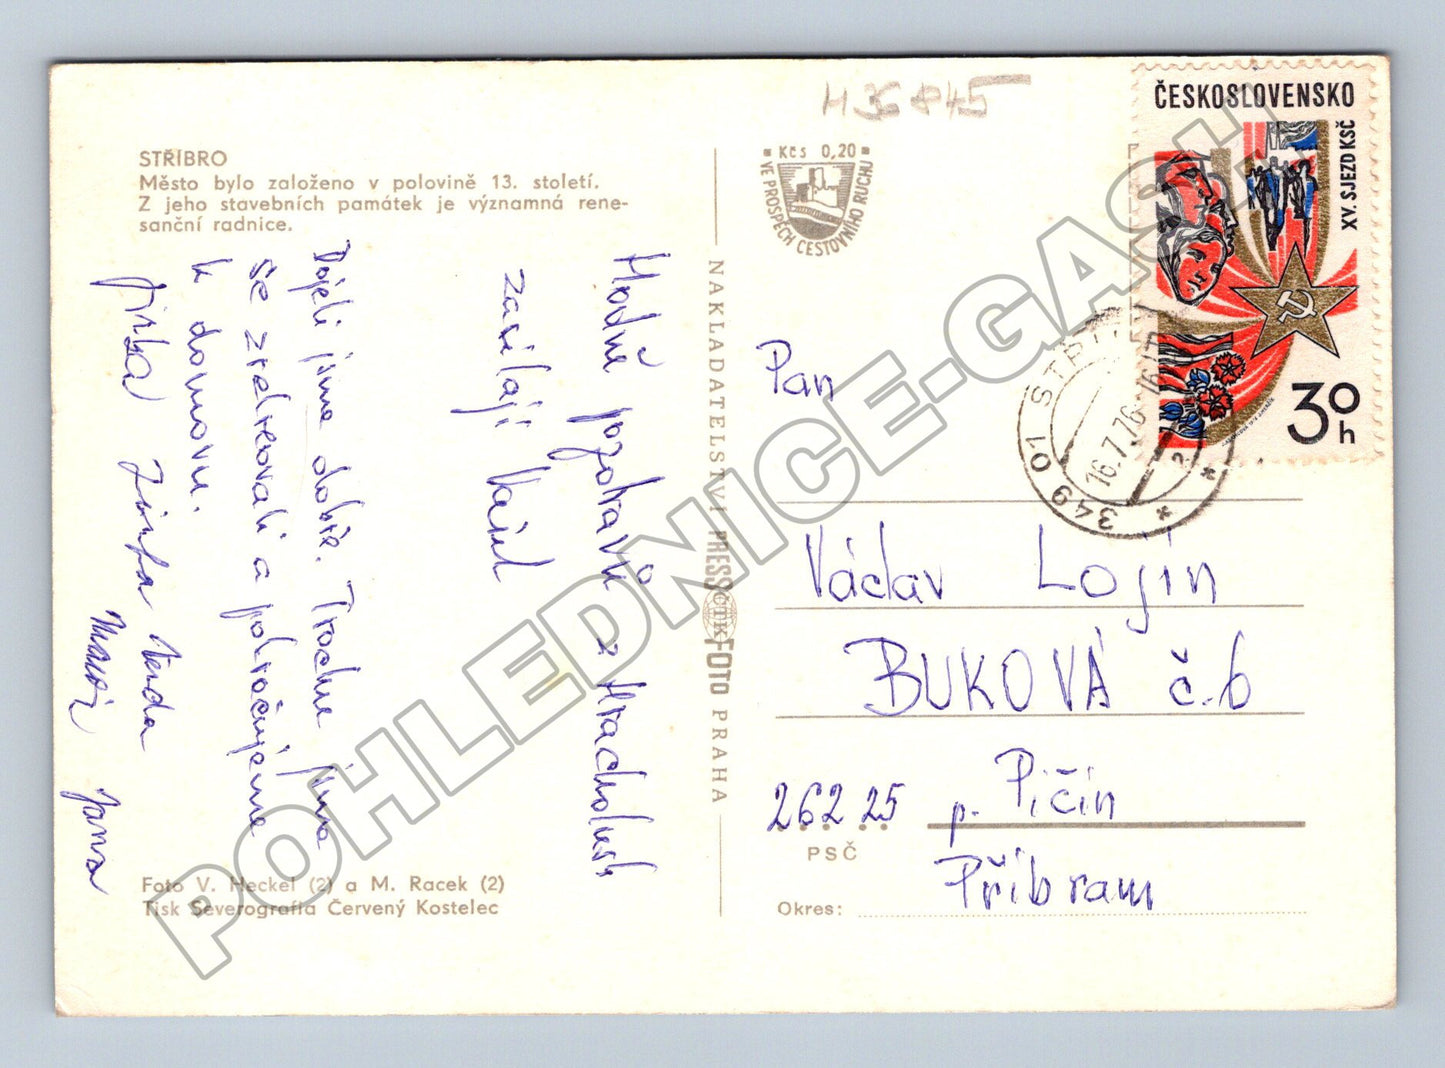 H36845
STŘÍBRO
Město bylo založeno v polovině 13. století.
Z jeho stavebních památek je význačná rene-
sanční radnice.
Kčs 0,20
VE PROSPĚCH CESTOVNÍHO RUCHU
ČESKOSLOVENSKO
XV. SJEZD KSČ
30 h
349 01 STŘÍ
16.7.76
Hodně pozdravů z Hracholusk
zasílají Vám
Dojeli jsme dobře. Trochu jsme
se zrekreovali a pokračujeme
k domovu.
Jirka
Jana
NAKLADATELSTVÍ PRESSFOTO PRAHA
ČTK
Pan
Václav Lojín
BUKOVÁ č.6
p. Pičín
262 25
PSČ
Příbram
Okres:
Foto V. Heckel (2) a M. Racek (2)
Tisk Severografia Červený Kostelec
POHLEDNICE-GASH